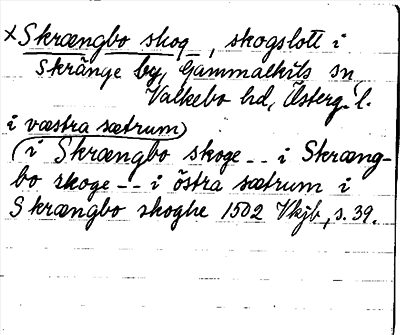 ×Skrængbo skog, skogslott i
Skränge by, Gammalkils sn
Valkebo hd, Österg. l.
i væstra sætrum)
(i Skrængbo skoge -- i Skræng-
bo skoge -- i östra sætrum i
Skrængbo skoghe 1502 Vkjb, s. 39.